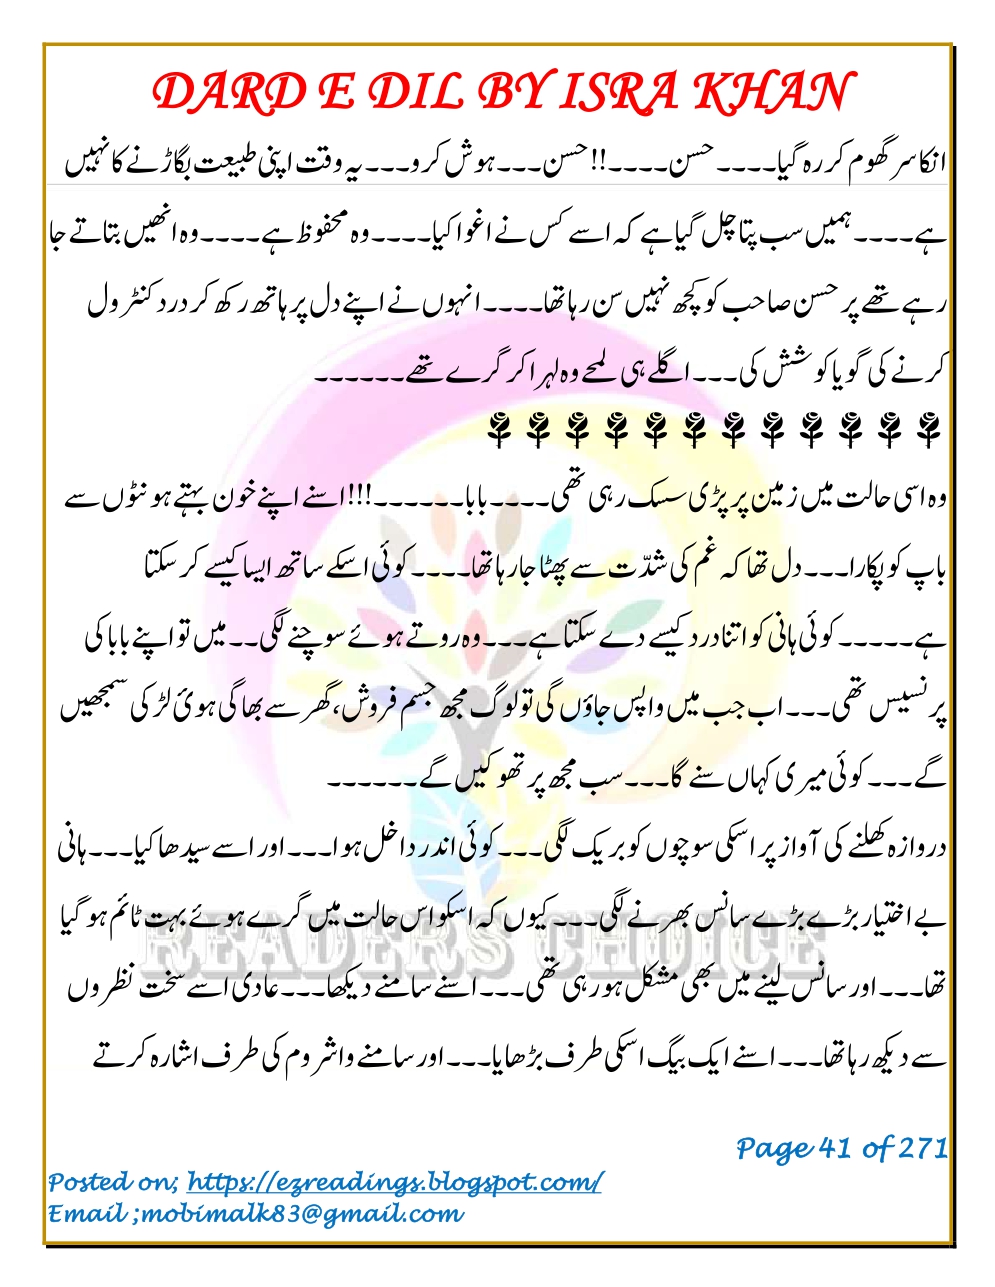 DARD E DIL BY ISRA KHAN
انکا سر گھوم کر رہ گیا۔۔۔۔ حسن۔۔۔۔!! حسن۔۔۔ ہوش کرو۔۔۔ یہ وقت اپنی طبیعت بگاڑنے کا نہیں
ہے۔۔۔۔ ہمیں سب پتا چل گیا ہے کہ اسے کس نے اغوا کیا۔۔۔۔ وہ محفوظ ہے۔۔۔۔ وہ انھیں بتاتے جا
رہے تھے پر حسن صاحب کو کچھ نہیں سن رہا تھا۔۔۔۔ انہوں نے اپنے دل پر ہاتھ رکھ کر درد کنٹرول
کرنے کی گویا کوشش کی۔۔۔ اگلے ہی لمحے وہ لہرا کر گرے تھے۔۔۔۔۔۔
وہ اسی حالت میں زمین پر پڑی سسک رہی تھی۔۔۔۔ بابا۔۔۔۔۔۔!!! اسنے اپنے خون بہتے ہونٹوں سے
باپ کو پکارا۔۔۔ دل تھا کہ غم کی شدّت سے پھٹا جا رہا تھا۔۔۔۔ کوئی اسکے ساتھ ایسا کیسے کر سکتا
ہے۔۔۔۔۔ کوئی ہانی کو اتنا درد کیسے دے سکتا ہے۔۔۔ وہ روتے ہوئے سوچنے لگی۔۔ میں تو اپنے بابا کی
پرنسیس تھی۔۔۔ اب جب میں واپس جاؤں گی تو لوگ مجھ جسم فروش، گھر سے بھاگی ہوئ لڑکی سمجھیں
گے۔۔۔ کوئی میری کہاں سنے گا۔۔۔ سب مجھ پر تھوکیں گے۔۔۔۔۔۔
دروازہ کھلنے کی آواز پر اسکی سوچوں کو بریک لگی۔۔۔ کوئی اندر داخل ہوا۔۔۔ اور اسے سیدھا کیا۔۔۔ ہانی
بے اختیار بڑے بڑے سانس بھرنے لگی۔۔۔ کیوں کہ اسکو اس حالت میں گرے ہوئے بہت ٹائم ہو گیا
تھا۔۔۔ اور سانس لینے میں بھی مشکل ہو رہی تھی۔۔۔ اسنے سامنے دیکھا۔۔۔ عادی اسے سخت نظروں
سے دیکھ رہا تھا۔۔۔ اسنے ایک بیگ اسکی طرف بڑھایا۔۔۔ اور سامنے واشروم کی طرف اشارہ کرتے
READERS CHOICE
Page 41 of 271
Posted on; https://ezreadings.blogspot.com/
Email ;mobimalk83@gmail.com